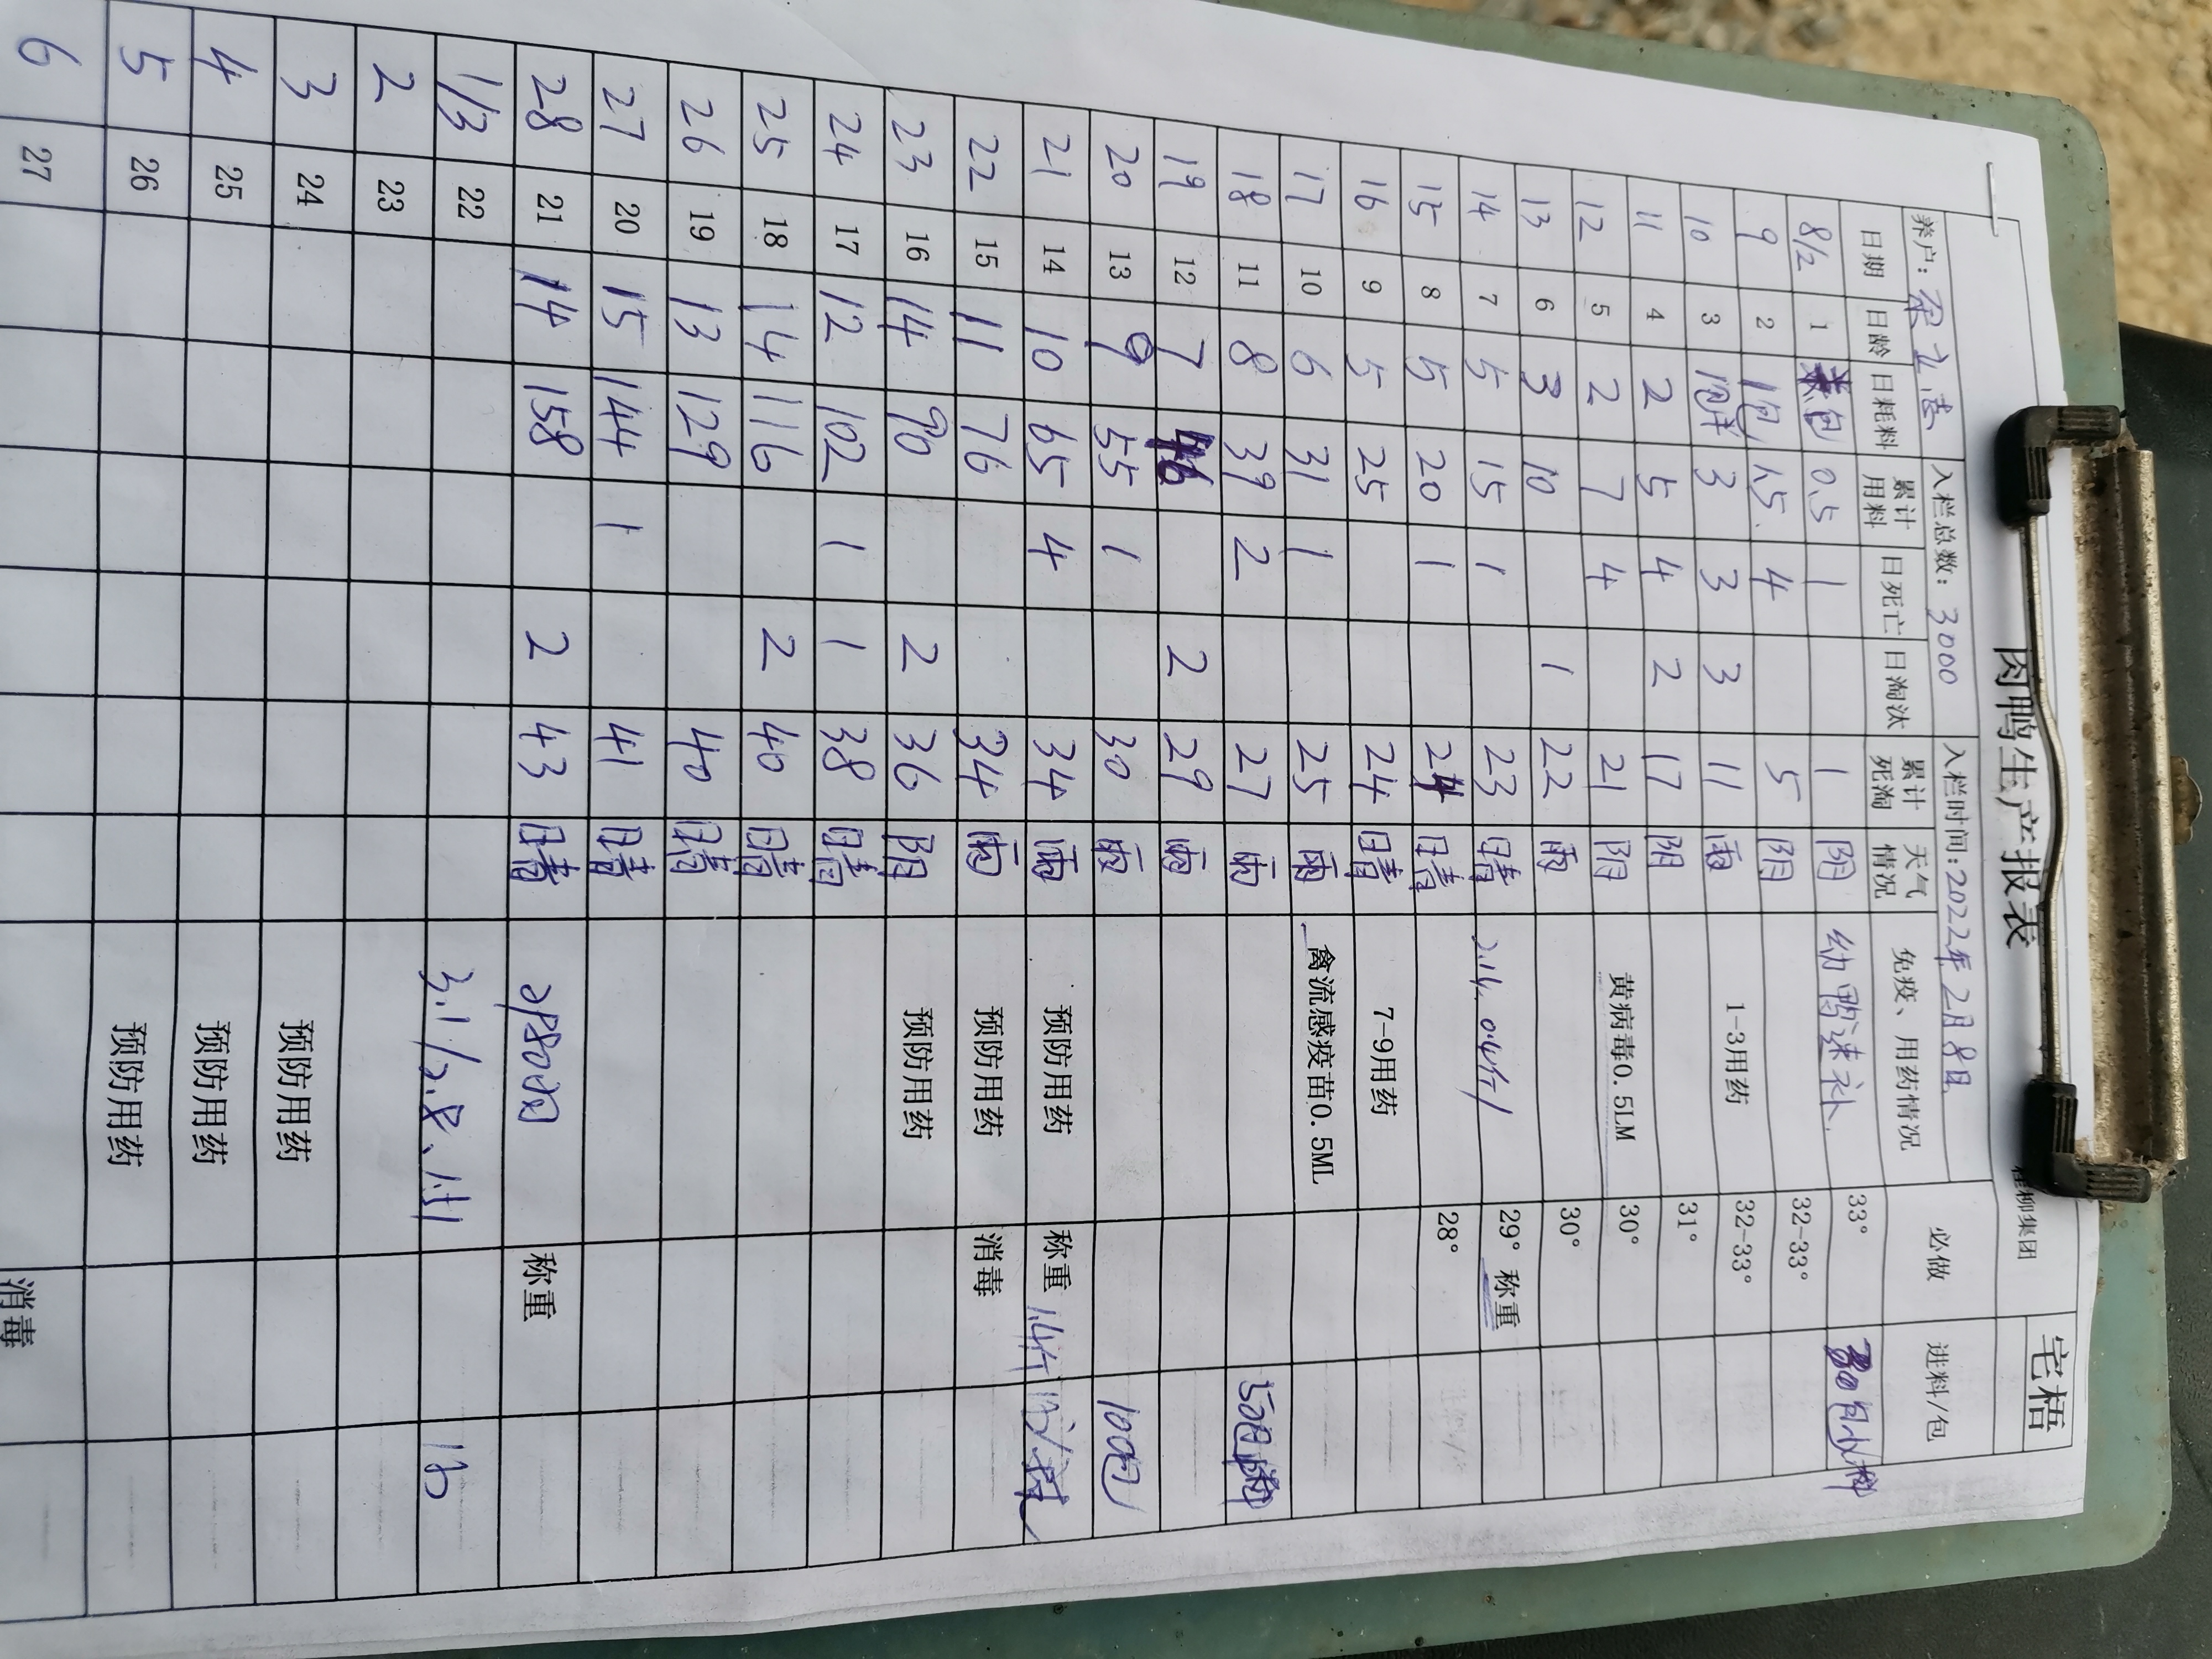 肉鸭生产报表
柳集团 宅梧
养户: 入栏总数: 3000 入栏时间: 2022年2月8日
日期 日龄 日耗料 累计用料 日死亡 日淘汰 累计死淘 天气情况 免疫、用药情况 必做 进料/包
8/2 1 包 0.5 1 1 阴 幼鸭速补 33° 包小鸭
9 2 1包 1.5 4 5 阴 32-33°
10 3 3 3 3 11 雨 1-3用药 32-33°
11 4 2 5 4 2 17 阴 31°
12 5 2 7 4 21 阴 黄病毒0.5LM 30°
13 6 3 10 1 22 雨 30°
14 7 5 15 1 23 晴 2.14. 0.4斤/ 29° 称重
15 8 5 20 1 24 晴 28°
16 9 5 25 24 晴 7-9用药
17 10 6 31 1 25 雨 禽流感疫苗0.5ML
18 11 8 39 2 27 雨 50包
19 12 7 46 2 29 雨
20 13 9 55 1 30 雨 100包
21 14 10 65 4 34 雨 预防用药 称重 1.4斤
22 15 11 76 34 雨 预防用药 消毒
23 16 14 90 2 36 阴 预防用药
24 17 12 102 1 1 38 晴
25 18 14 116 2 40 晴
26 19 13 129 40 晴
27 20 15 144 1 41 晴
28 21 14 158 2 43 晴 称重
1/3 22 3.1/2.8、 130
2 23
3 24 预防用药
4 25 预防用药
5 26 预防用药
6 27 消毒